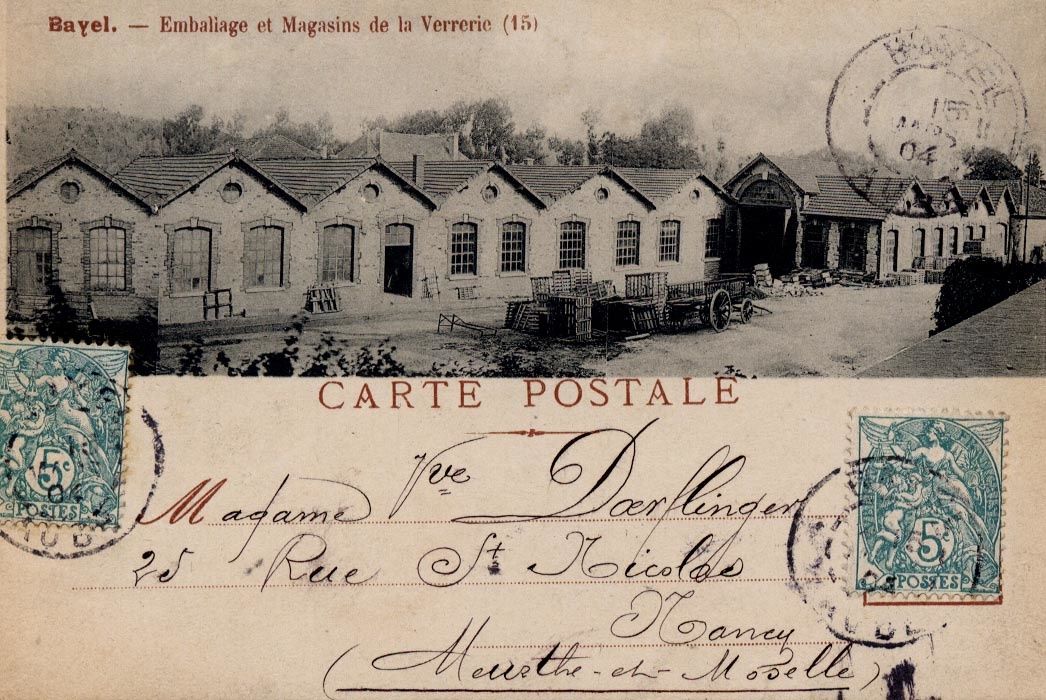 Bayel. — Emballage et Magasins de la Verrerie (15)
BAYEL
15
MARS
04
CARTE POSTALE
Madame Vve Dœrflinger
25 Rue St Nicolas
Nancy
(Meurthe-et-Moselle)
5c
POSTES
04
AUBE
5c
POSTES
AUBE